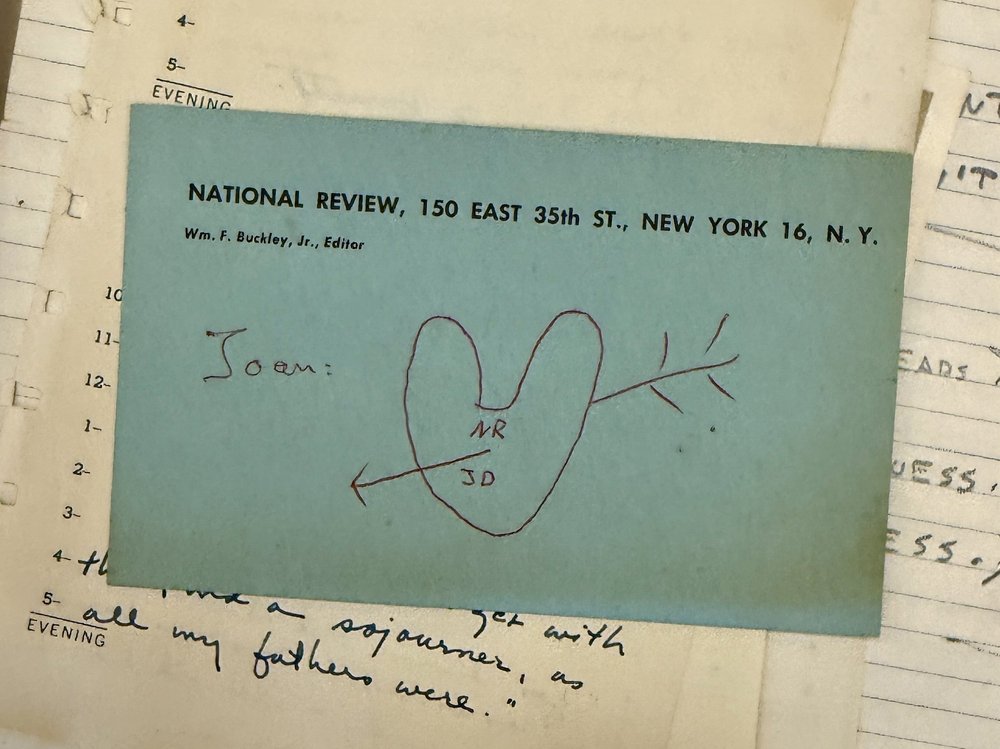 4-
5-
EVENING
NATIONAL REVIEW, 150 EAST 35th ST., NEW YORK 16, N. Y.
Wm. F. Buckley, Jr., Editor
Joan:
NR
JD
10
11-
12-
1-
2-
3-
4-
5-
EVENING
and a
with
all my fathers were."
sojourner, as
NT
IT
EADS
UESS.
ESS.